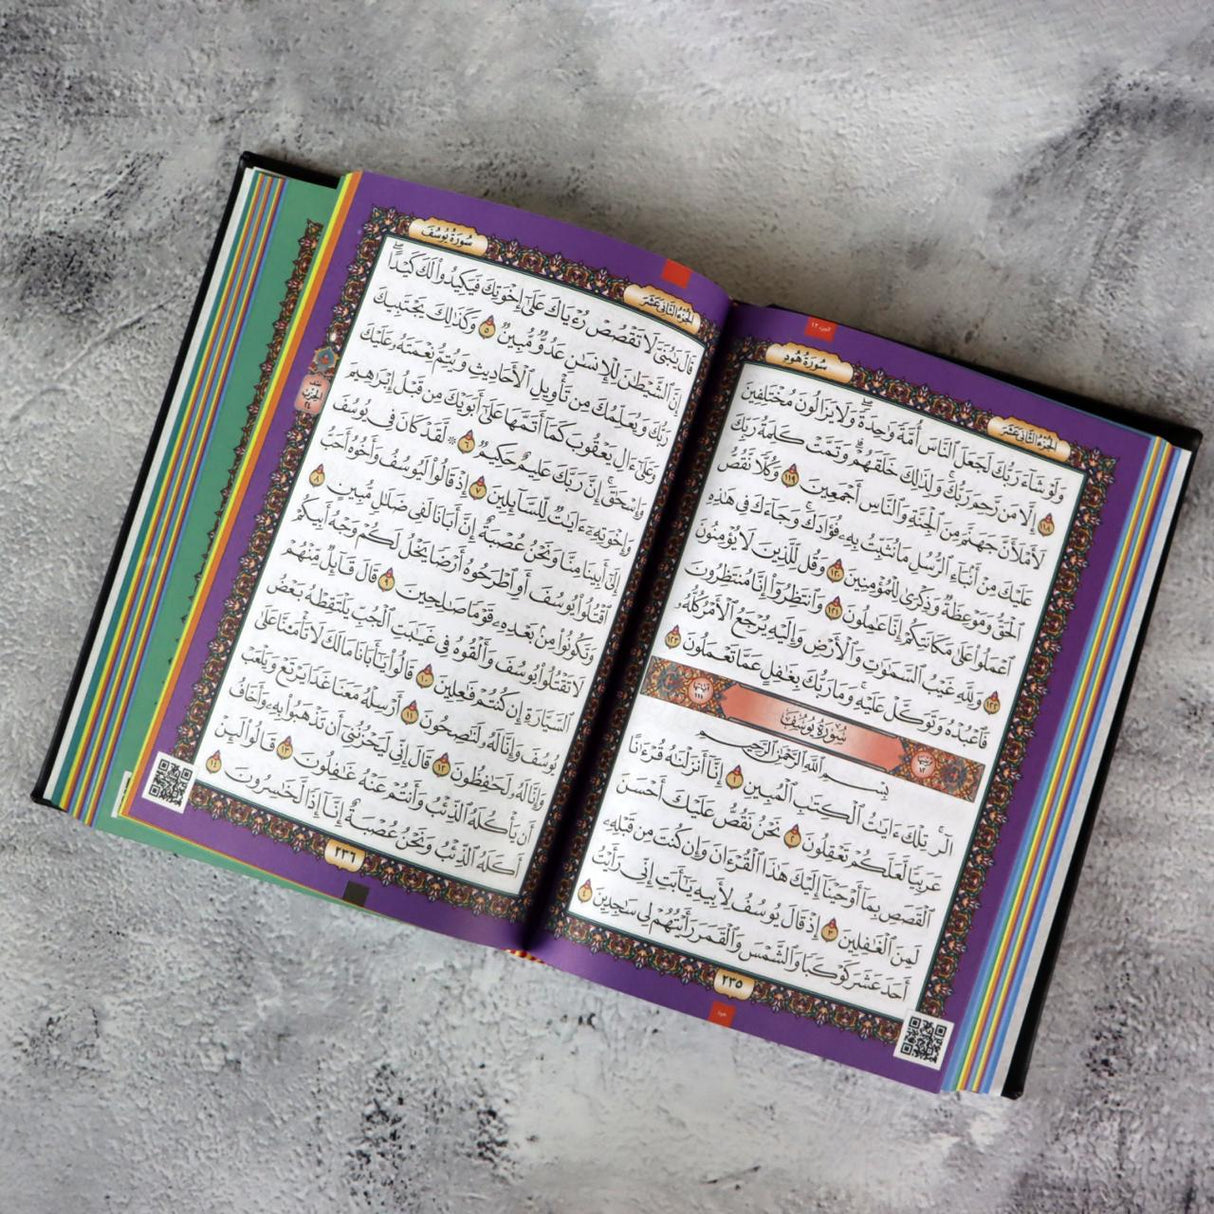 الجزء ١٢
الجُزْءُ الثَّانِي عَشَرَ
سُورَةُ هُودٍ
وَلَوْ شَآءَ رَبُّكَ لَجَعَلَ ٱلنَّاسَ أُمَّةً وَٰحِدَةً ۖ وَلَا يَزَالُونَ مُخْتَلِفِينَ
١١٨ إِلَّا مَن رَّحِمَ رَبُّكَ ۚ وَلِذَٰلِكَ خَلَقَهُمْ ۗ وَتَمَّتْ كَلِمَةُ رَبِّكَ
لَأَمْلَأَنَّ جَهَنَّمَ مِنَ ٱلْجِنَّةِ وَٱلنَّاسِ أَجْمَعِينَ ١١٩ وَكُلًّا نَّقُصُّ
عَلَيْكَ مِنْ أَنۢبَآءِ ٱلرُّسُلِ مَا نُثَبِّتُ بِهِۦ فُؤَادَكَ ۚ وَجَآءَكَ فِى هَٰذِهِ
ٱلْحَقُّ وَمَوْعِظَةٌ وَذِكْرَىٰ لِلْمُؤْمِنِينَ ١٢٠ وَقُل لِّلَّذِينَ لَا يُؤْمِنُونَ
ٱعْمَلُوا۟ عَلَىٰ مَكَانَتِكُمْ إِنَّا عَٰمِلُونَ ١٢١ وَٱنتَظِرُوٓا۟ إِنَّا مُنتَظِرُونَ
١٢٢ وَلِلَّهِ غَيْبُ ٱلسَّمَٰوَٰتِ وَٱلْأَرْضِ وَإِلَيْهِ يُرْجَعُ ٱلْأَمْرُ كُلُّهُۥ
فَٱعْبُدْهُ وَتَوَكَّلْ عَلَيْهِ ۚ وَمَا رَبُّكَ بِغَٰفِلٍ عَمَّا تَعْمَلُونَ ١٢٣
سُورَةُ يُوسُفَ
بِسْمِ ٱللَّهِ ٱلرَّحْمَٰنِ ٱلرَّحِيمِ
الٓر ۚ تِلْكَ ءَايَٰتُ ٱلْكِتَٰبِ ٱلْمُبِينِ ١ إِنَّآ أَنزَلْنَٰهُ قُرْءَٰنًا
عَرَبِيًّا لَّعَلَّكُمْ تَعْقِلُونَ ٢ نَحْنُ نَقُصُّ عَلَيْكَ أَحْسَنَ
ٱلْقَصَصِ بِمَآ أَوْحَيْنَآ إِلَيْكَ هَٰذَا ٱلْقُرْءَانَ وَإِن كُنتَ مِن قَبْلِهِۦ
لَمِنَ ٱلْغَٰفِلِينَ ٣ إِذْ قَالَ يُوسُفُ لِأَبِيهِ يَٰٓأَبَتِ إِنِّى رَأَيْتُ
أَحَدَ عَشَرَ كَوْكَبًا وَٱلشَّمْسَ وَٱلْقَمَرَ رَأَيْتُهُمْ لِى سَٰجِدِينَ ٤
٢٣٥
هود
الجُزْءُ الثَّانِي عَشَرَ
سُورَةُ يُوسُفَ
قَالَ يَٰبُنَىَّ لَا تَقْصُصْ رُءْيَاكَ عَلَىٰٓ إِخْوَتِكَ فَيَكِيدُوا۟ لَكَ كَيْدًا ۖ
إِنَّ ٱلشَّيْطَٰنَ لِلْإِنسَٰنِ عَدُوٌّ مُّبِينٌ ٥ وَكَذَٰلِكَ يَجْتَبِيكَ
رَبُّكَ وَيُعَلِّمُكَ مِن تَأْوِيلِ ٱلْأَحَادِيثِ وَيُتِمُّ نِعْمَتَهُۥ عَلَيْكَ
وَعَلَىٰٓ ءَالِ يَعْقُوبَ كَمَآ أَتَمَّهَا عَلَىٰٓ أَبَوَيْكَ مِن قَبْلُ إِبْرَٰهِيمَ
وَإِسْحَٰقَ ۚ إِنَّ رَبَّكَ عَلِيمٌ حَكِيمٌ ٦ ۞ لَّقَدْ كَانَ فِى يُوسُفَ
وَإِخْوَتِهِۦٓ ءَايَٰتٌ لِّلسَّآئِلِينَ ٧ إِذْ قَالُوا۟ لَيُوسُفُ وَأَخُوهُ أَحَبُّ
إِلَىٰٓ أَبِينَا مِنَّا وَنَحْنُ عُصْبَةٌ إِنَّ أَبَانَا لَفِى ضَلَٰلٍ مُّبِينٍ ٨
ٱقْتُلُوا۟ يُوسُفَ أَوِ ٱطْرَحُوهُ أَرْضًا يَخْلُ لَكُمْ وَجْهُ أَبِيكُمْ
وَتَكُونُوا۟ مِنۢ بَعْدِهِۦ قَوْمًا صَٰلِحِينَ ٩ قَالَ قَآئِلٌ مِّنْهُمْ
لَا تَقْتُلُوا۟ يُوسُفَ وَأَلْقُوهُ فِى غَيَٰبَتِ ٱلْجُبِّ يَلْتَقِطْهُ بَعْضُ
ٱلسَّيَّارَةِ إِن كُنتُمْ فَٰعِلِينَ ١٠ قَالُوا۟ يَٰٓأَبَانَا مَا لَكَ لَا تَأْمَ۫نَّا عَلَىٰ
يُوسُفَ وَإِنَّا لَهُۥ لَنَٰصِحُونَ ١١ أَرْسِلْهُ مَعَنَا غَدًا يَرْتَعْ وَيَلْعَبْ
وَإِنَّا لَهُۥ لَحَٰفِظُونَ ١٢ قَالَ إِنِّى لَيَحْزُنُنِىٓ أَن تَذْهَبُوا۟ بِهِۦ وَأَخَافُ
أَن يَأْكُلَهُ ٱلذِّئْبُ وَأَنتُمْ عَنْهُ غَٰفِلُونَ ١٣ قَالُوا۟ لَئِنْ
أَكَلَهُ ٱلذِّئْبُ وَنَحْنُ عُصْبَةٌ إِنَّآ إِذًا لَّخَٰسِرُونَ ١٤
٢٣٦